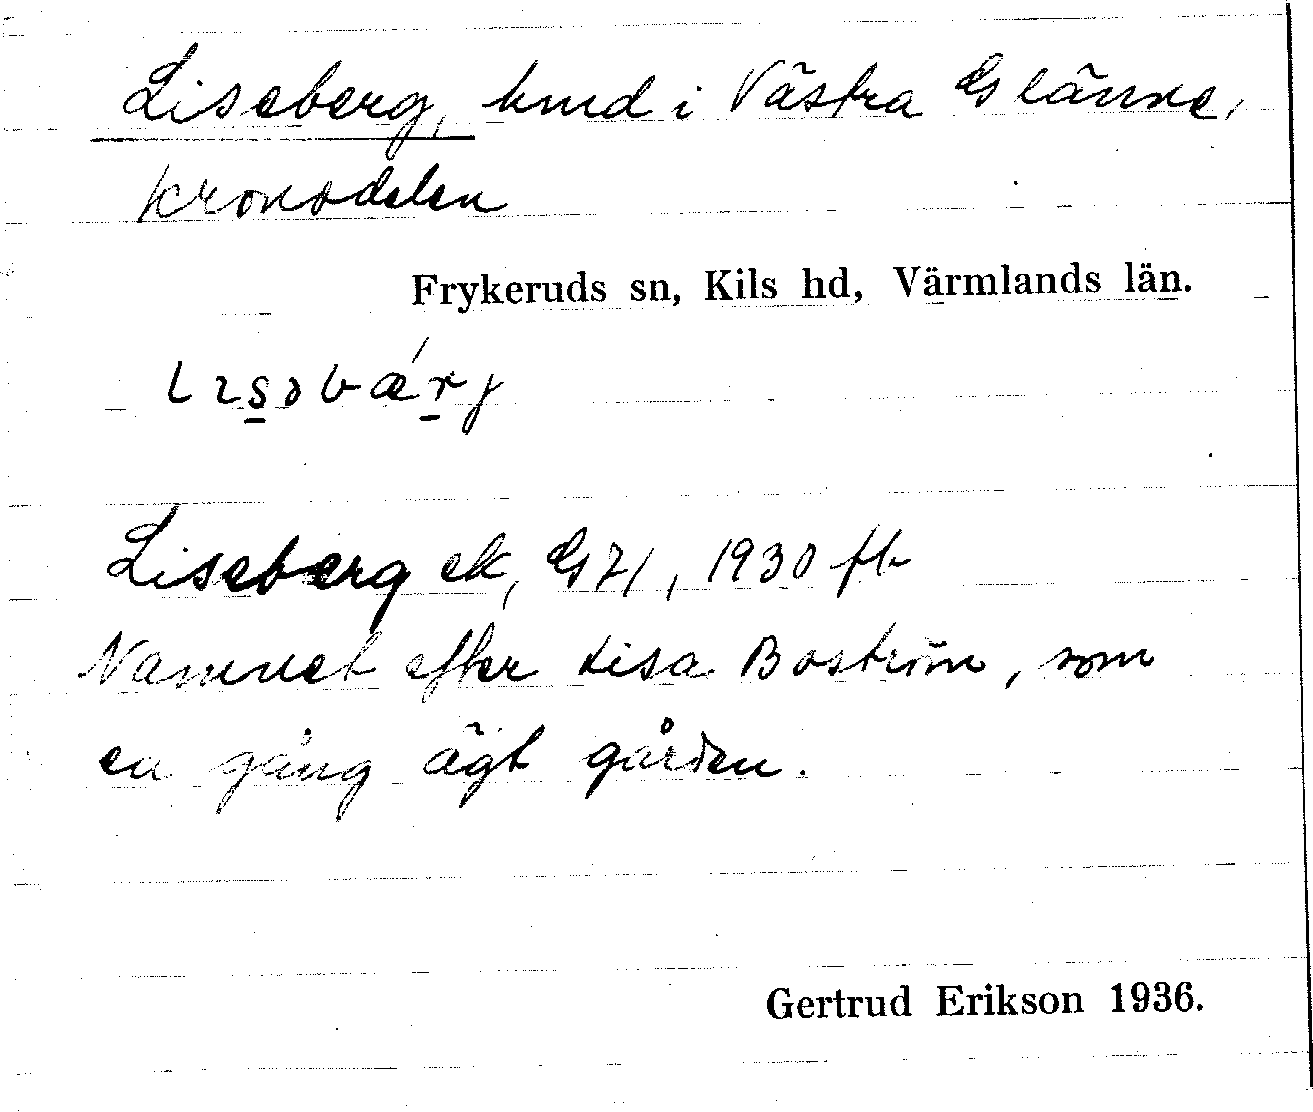 Liseberg, hmd i Västra Glänne,
Kronodelen
Frykeruds sn, Kils hd, Värmlands län.
Liseberg ek, G 71, 1930 fb
Namnet efter Lisa Boström, som
en gång ägt gården.
Gertrud Erikson 1936.